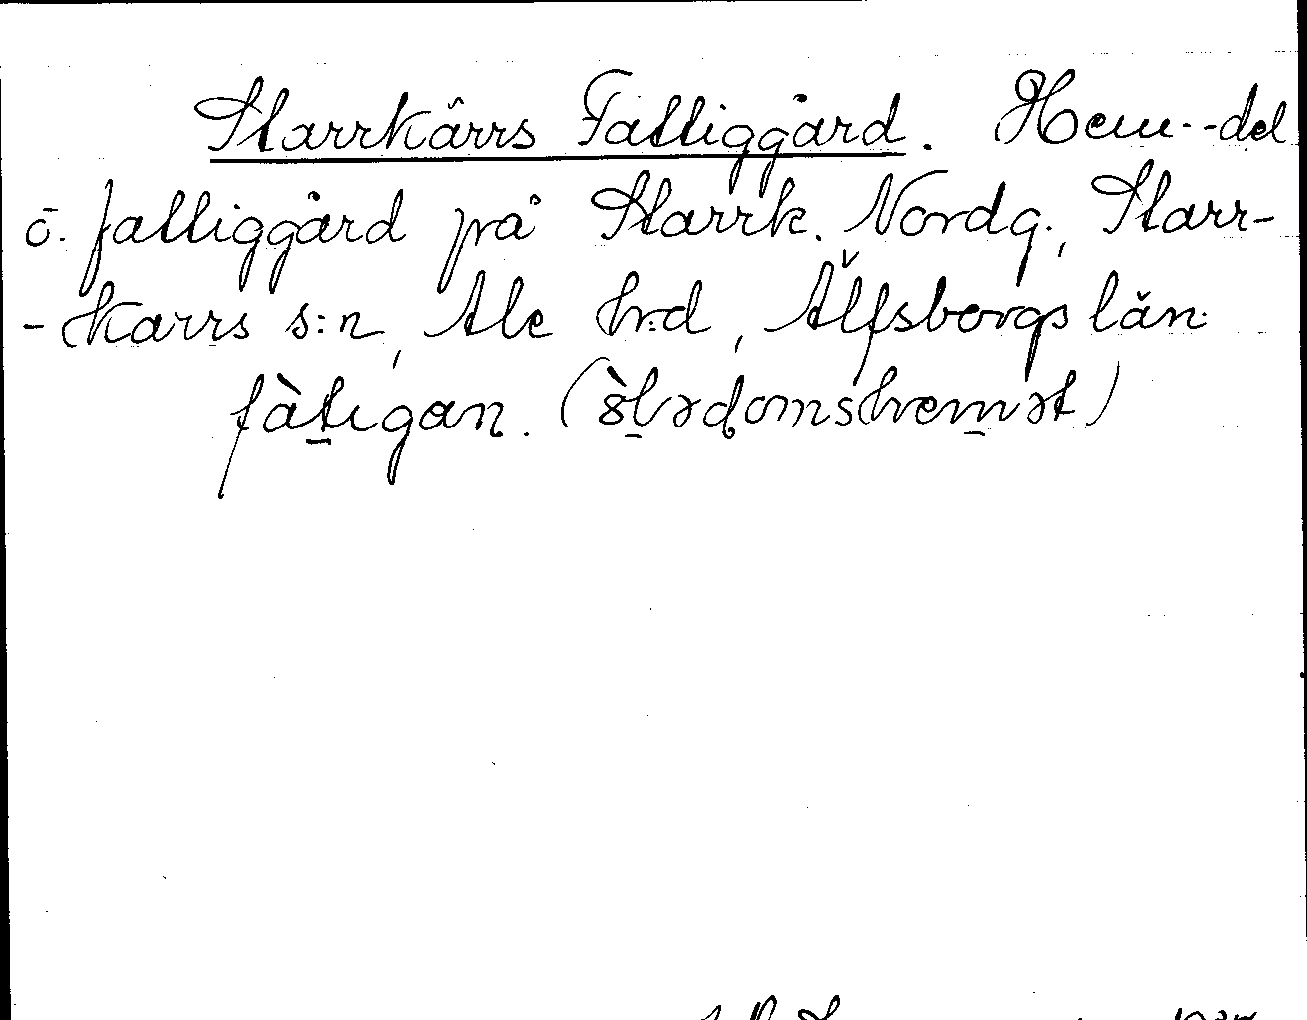 Starrkärrs Fattiggård. Hem.-del
o. fattiggård på Starrk. Nordg., Starr-
-kärrs s:n, Ale hrd, Älfsborgs län.
fàtigan. (ò̤lədomshemət)